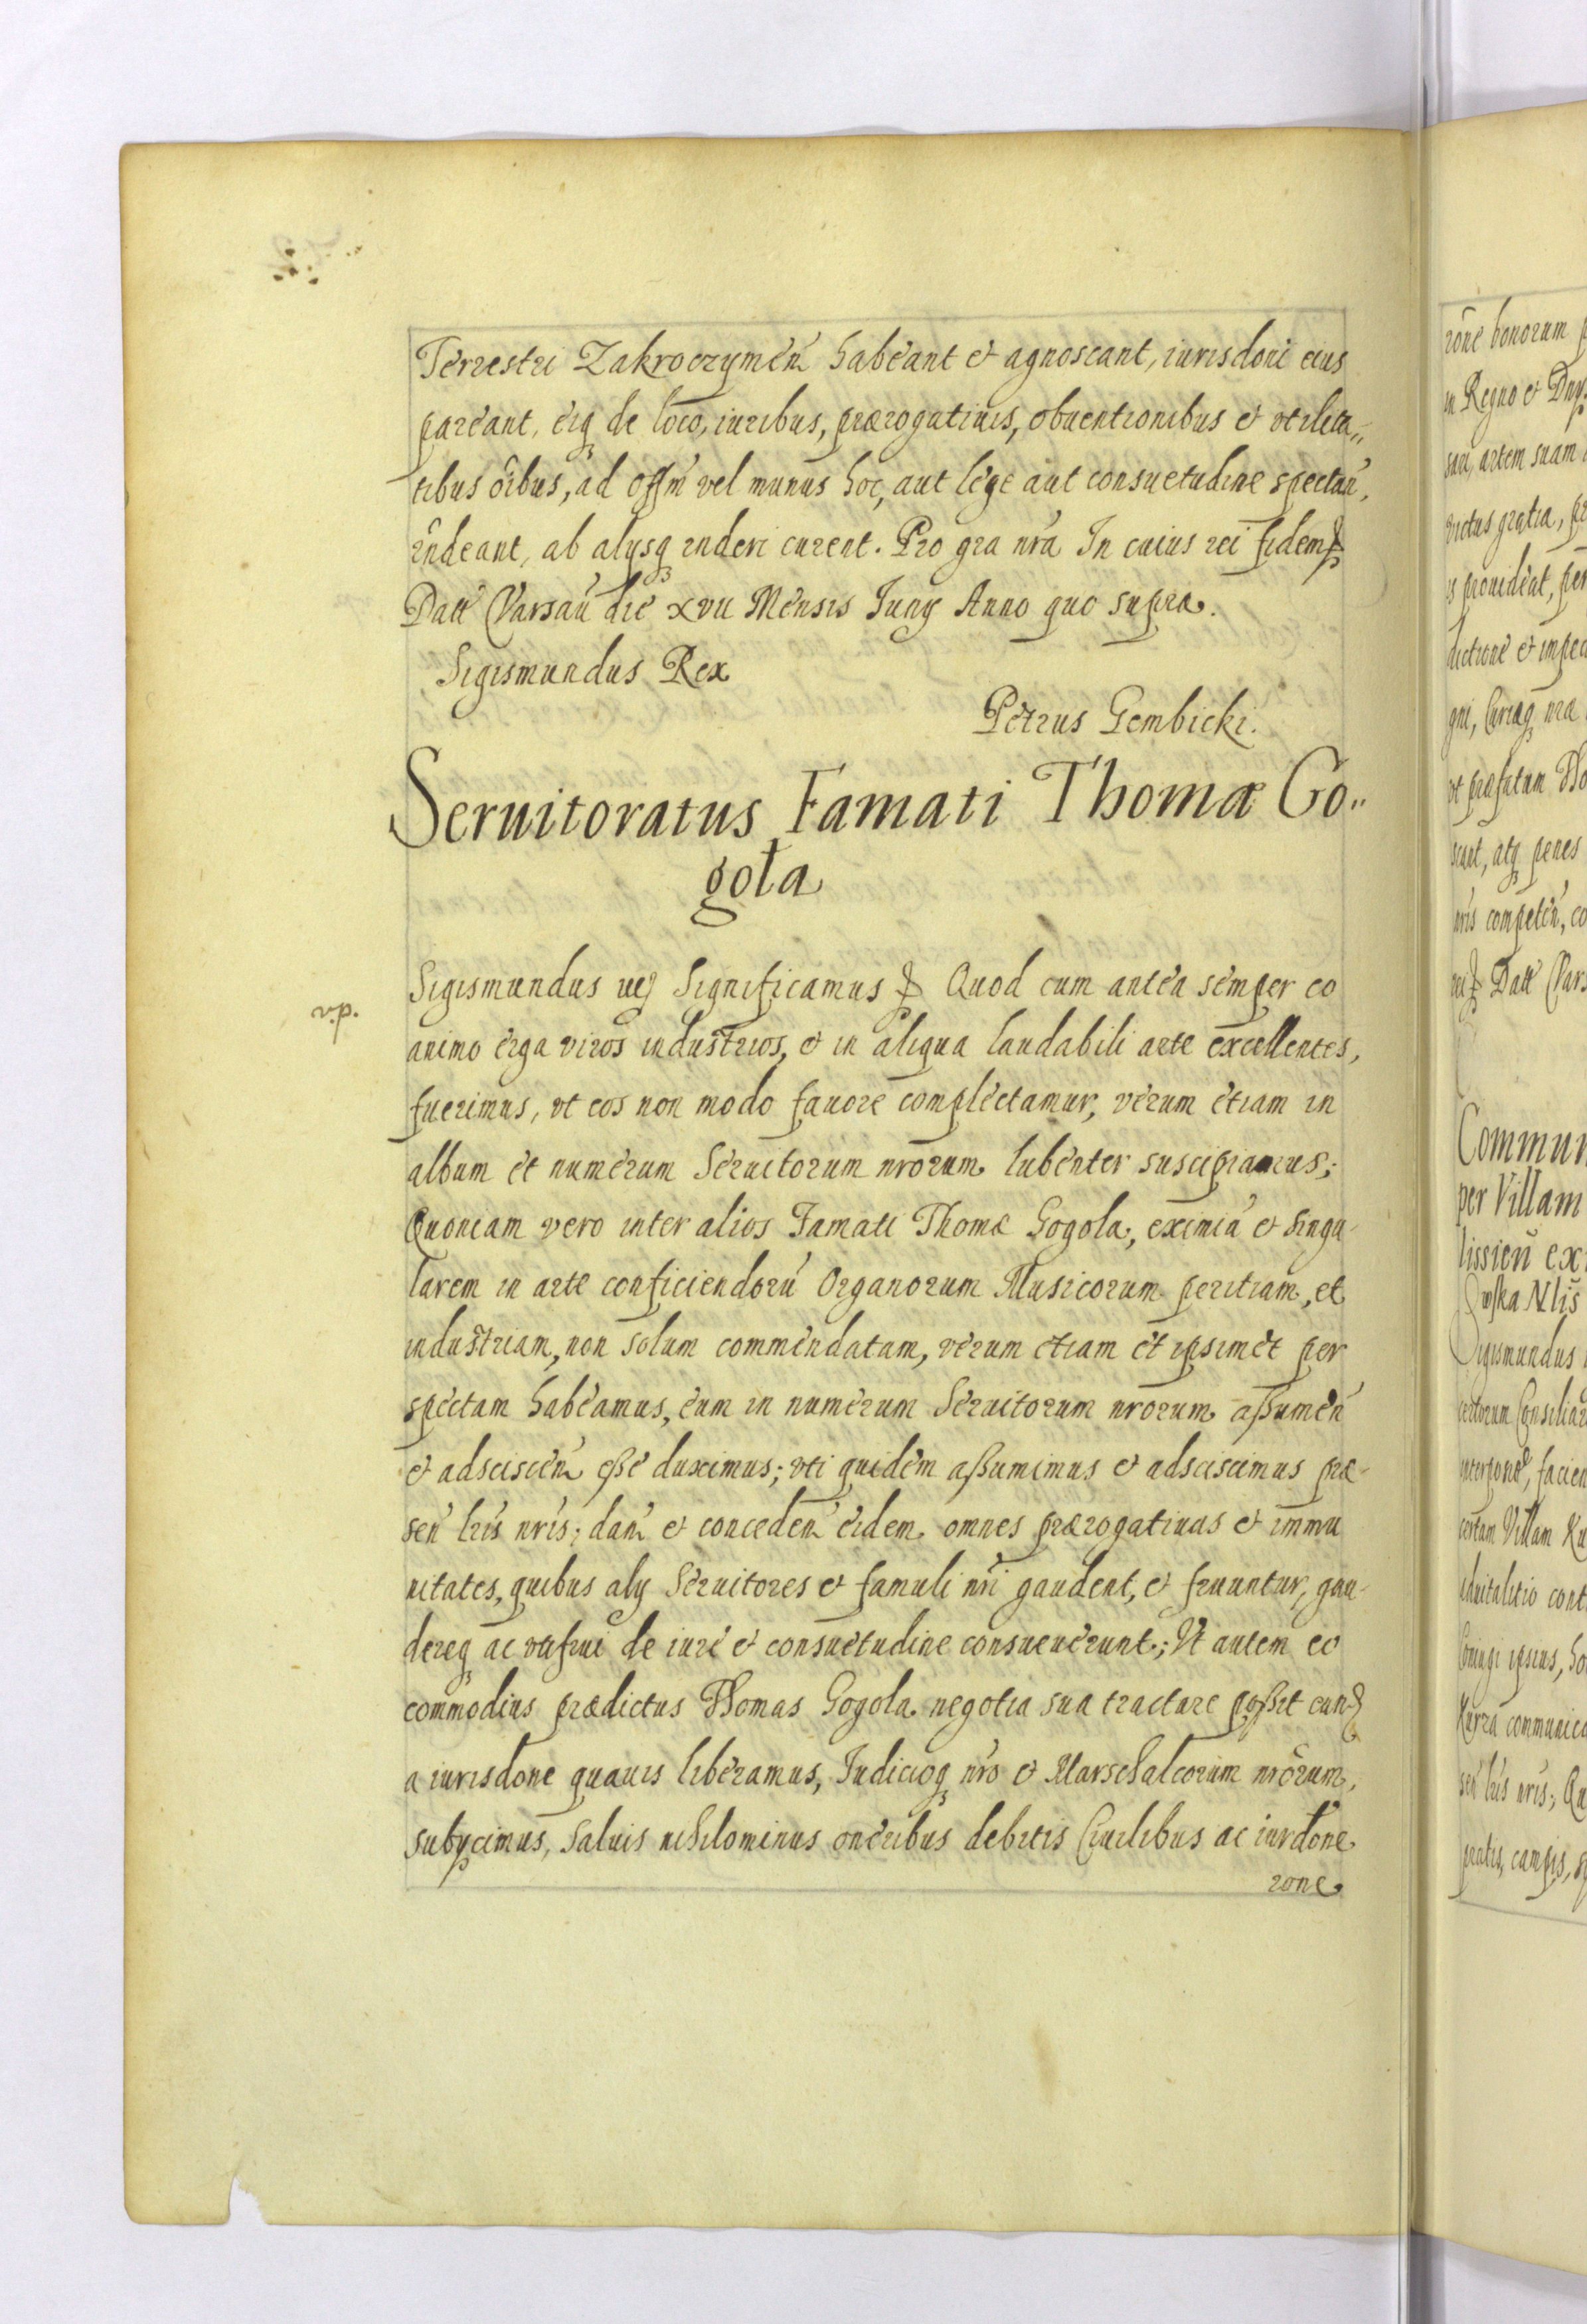 Terrestri Zakroczymeñ habeant et agnoscant, iurisdoni eius
pareant, eiq de loco, iuribus, prærogatiuis, obuentionibus et vtilita„
tibus oîbus, ad offm̃ vel munus hoc, aut lege aut consuetudine spectañ,
rñdeant, ab alysq rnderi curent. Pro gra nra In cuius rei fidem
Datt Varsau die xvii Mensis Juny Anno quo supra.
Sigismundus Rex
Petrus Gembicki.
Seruitoratus Famati Thomæ Go„
gola
v.p.
Sigismundus Significamus Quod cum antea semper eo
animo erga viros industrios, et in aliqua laudabili arte excellentes,
fuerimus, vt eos non modo fauore complectamur, verum etiam in
album et numerum Seruitorum nrorum lubenter suscipiamus;
Quoniam vero inter alios Famati Thomæ Gogola, eximiã et singu-
larem in arte conficiendorũ Organorum Musicorum peritiam, et
industriam, non solum commendatam, verum etiam et ipsimet per
spectam habeamus, eum in numerum Seruitorum nrorum assumeñ
et adscisceñ esse duximus; vti quidem assumimus et adsciscimus præ-
señ lris nris; dañ et concedeñ eidem omnes prærogatiuas et immu
nitates, quibus aly Seruitores et famuli nri gaudent, et fruuntur, gau-
dereq ac vti frui de iure et consuetudine consueuerunt; Vt autem eo
commodius prædictus Thomas Gogola negotia sua tractare possit eund
a iurisdone quauis liberamus, Iudicioq nro et Marschalcorum nrorum,
subycimus, Saluis nihilominus oneribus debitis Ciuilibus ac iurdone
rone
rone bonorum
in Regno et Dny
artem suam
victus gratia,
prouideat, per
dictione et imped
gni, Curiaq nra
vt præfatum Tho
scant, atq penes
nris competeñ, co
Datt Vars
Commun
per Villam
lissieñ ex
Nlis
Sigismundus
Consiliar
facien
certam Villam Ku
cont
Coniugi ipsius, ho
communica
señ lris nris; Qu
pratis, campis,